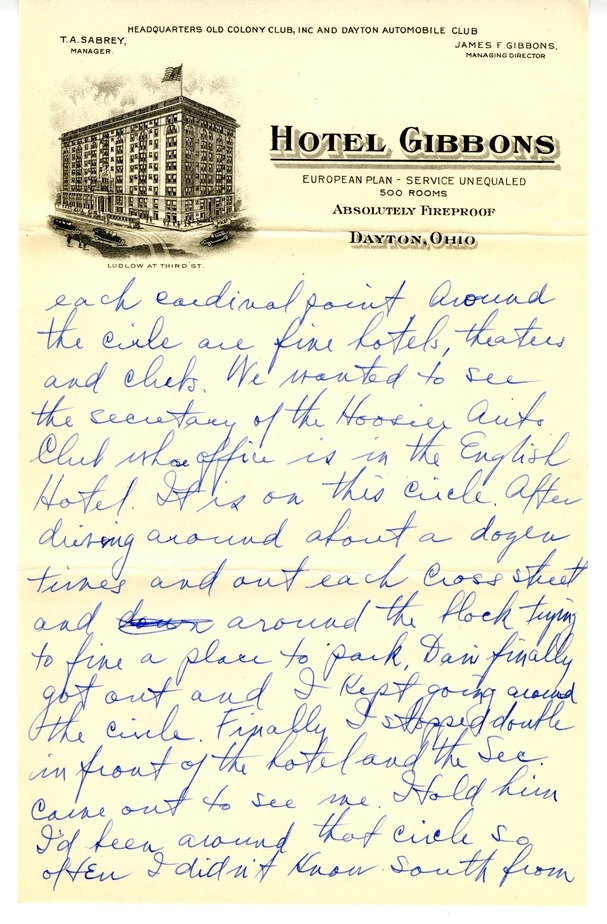 HEADQUARTERS OLD COLONY CLUB, INC AND DAYTON AUTOMOBILE CLUB
T. A. SABREY,
MANAGER.
JAMES F. GIBBONS,
MANAGING DIRECTOR
HOTEL GIBBONS
EUROPEAN PLAN - SERVICE UNEQUALED
500 ROOMS
ABSOLUTELY FIREPROOF
DAYTON, OHIO
LUDLOW AT THIRD ST.
each cardinal point. Around
the circle are fine hotels, theaters
and clubs. We wanted to see
the secretary of the Hoosier Auto
Club whose office is in the English
Hotel. It is on this circle. After
driving around about a dozen
times and out each cross street
and down around the block trying
to fine a place to park, Dan finally
got out and I kept going around
the circle. Finally I stopped double
in front of the hotel and the Sec.
came out to see me. I told him
I'd been around that circle so
often I didn't know south from